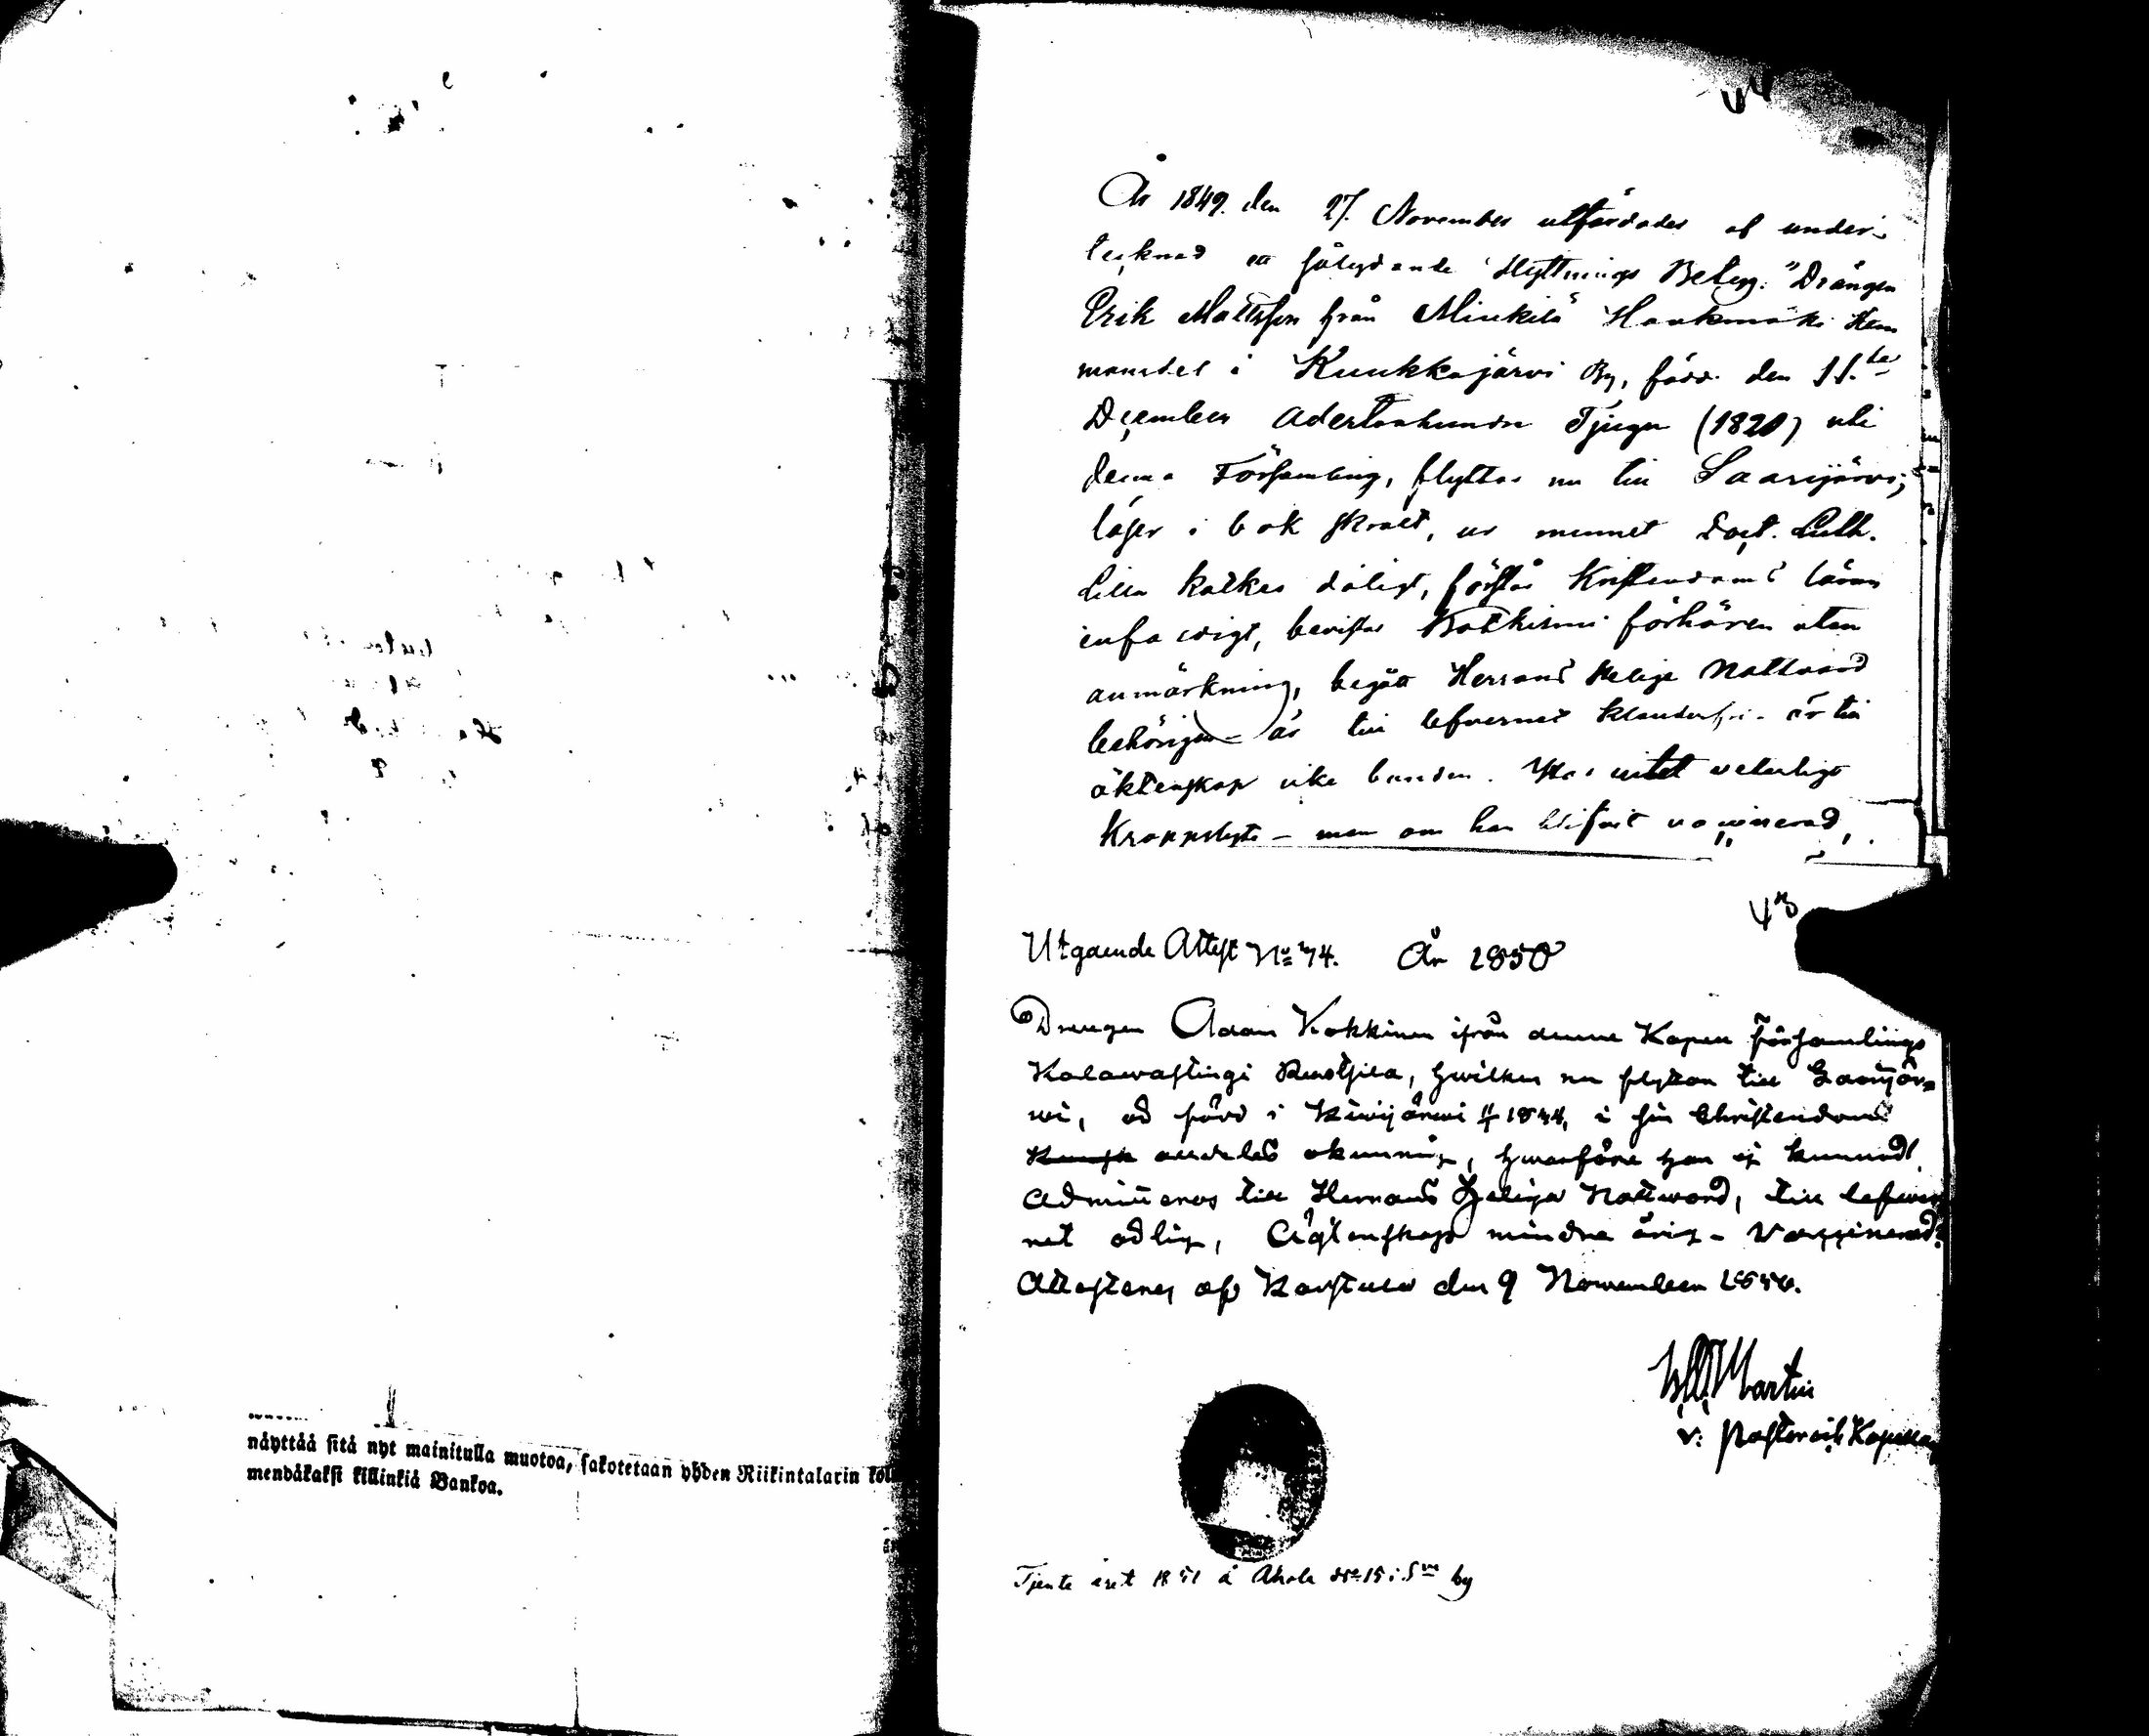 näyttää sitä nyt mainitulla muotoa, sakotetaan yhden Riikintalarin kol
mendäkaksi killinkiä Bankoa.
44
År 1849. den 27. November utfärdades af under-
tecknad ett sålydande Flyttnings Betyg: "Drängen
Erik Mattsson från Minkilä Haukmäki Hem
mansdel i Kuukkajärvi By, född den 11.te
December Adertonhundra Tjugu (1820) uti
denna Församling, flyttar nu till Saarijärvi;
läser i bok skralt, ur minnet Doct. Luth.
Lilla Katkes dåligt, förstår Kristendoms läran
enfaldigt, bevistar Katkismi förhören utan
anmärkning, begått Herrans Helige Nattvard
behörigen – är till lefvernet klanderfri – är till
äktenskap icke bunden. Har intet veterligt
Kroppslyte – men om han blifvit vaccinerad,
43
Utgående Attest No 74. År 1850
Drengen Adam Kokkinen ifrån denne Kapell församlings
Ruotsila, hwilken nu flyttar till Saarijär-
wi, är född i Kiwijärwi 1844, i sin Christendoms
Kunsk aldeles okunnig, hwarföre han ej kunnat
Admitteras till Herrans Heliga Nattward, till lefwer
net ärlig, Ägtenskaps minderårig – Vaccinerad
Attesteras af Karstula den 9 November 1850.
Martin
v. Pastor och Kapellan
Tjente året 1851 å Ahola No 15 i S by